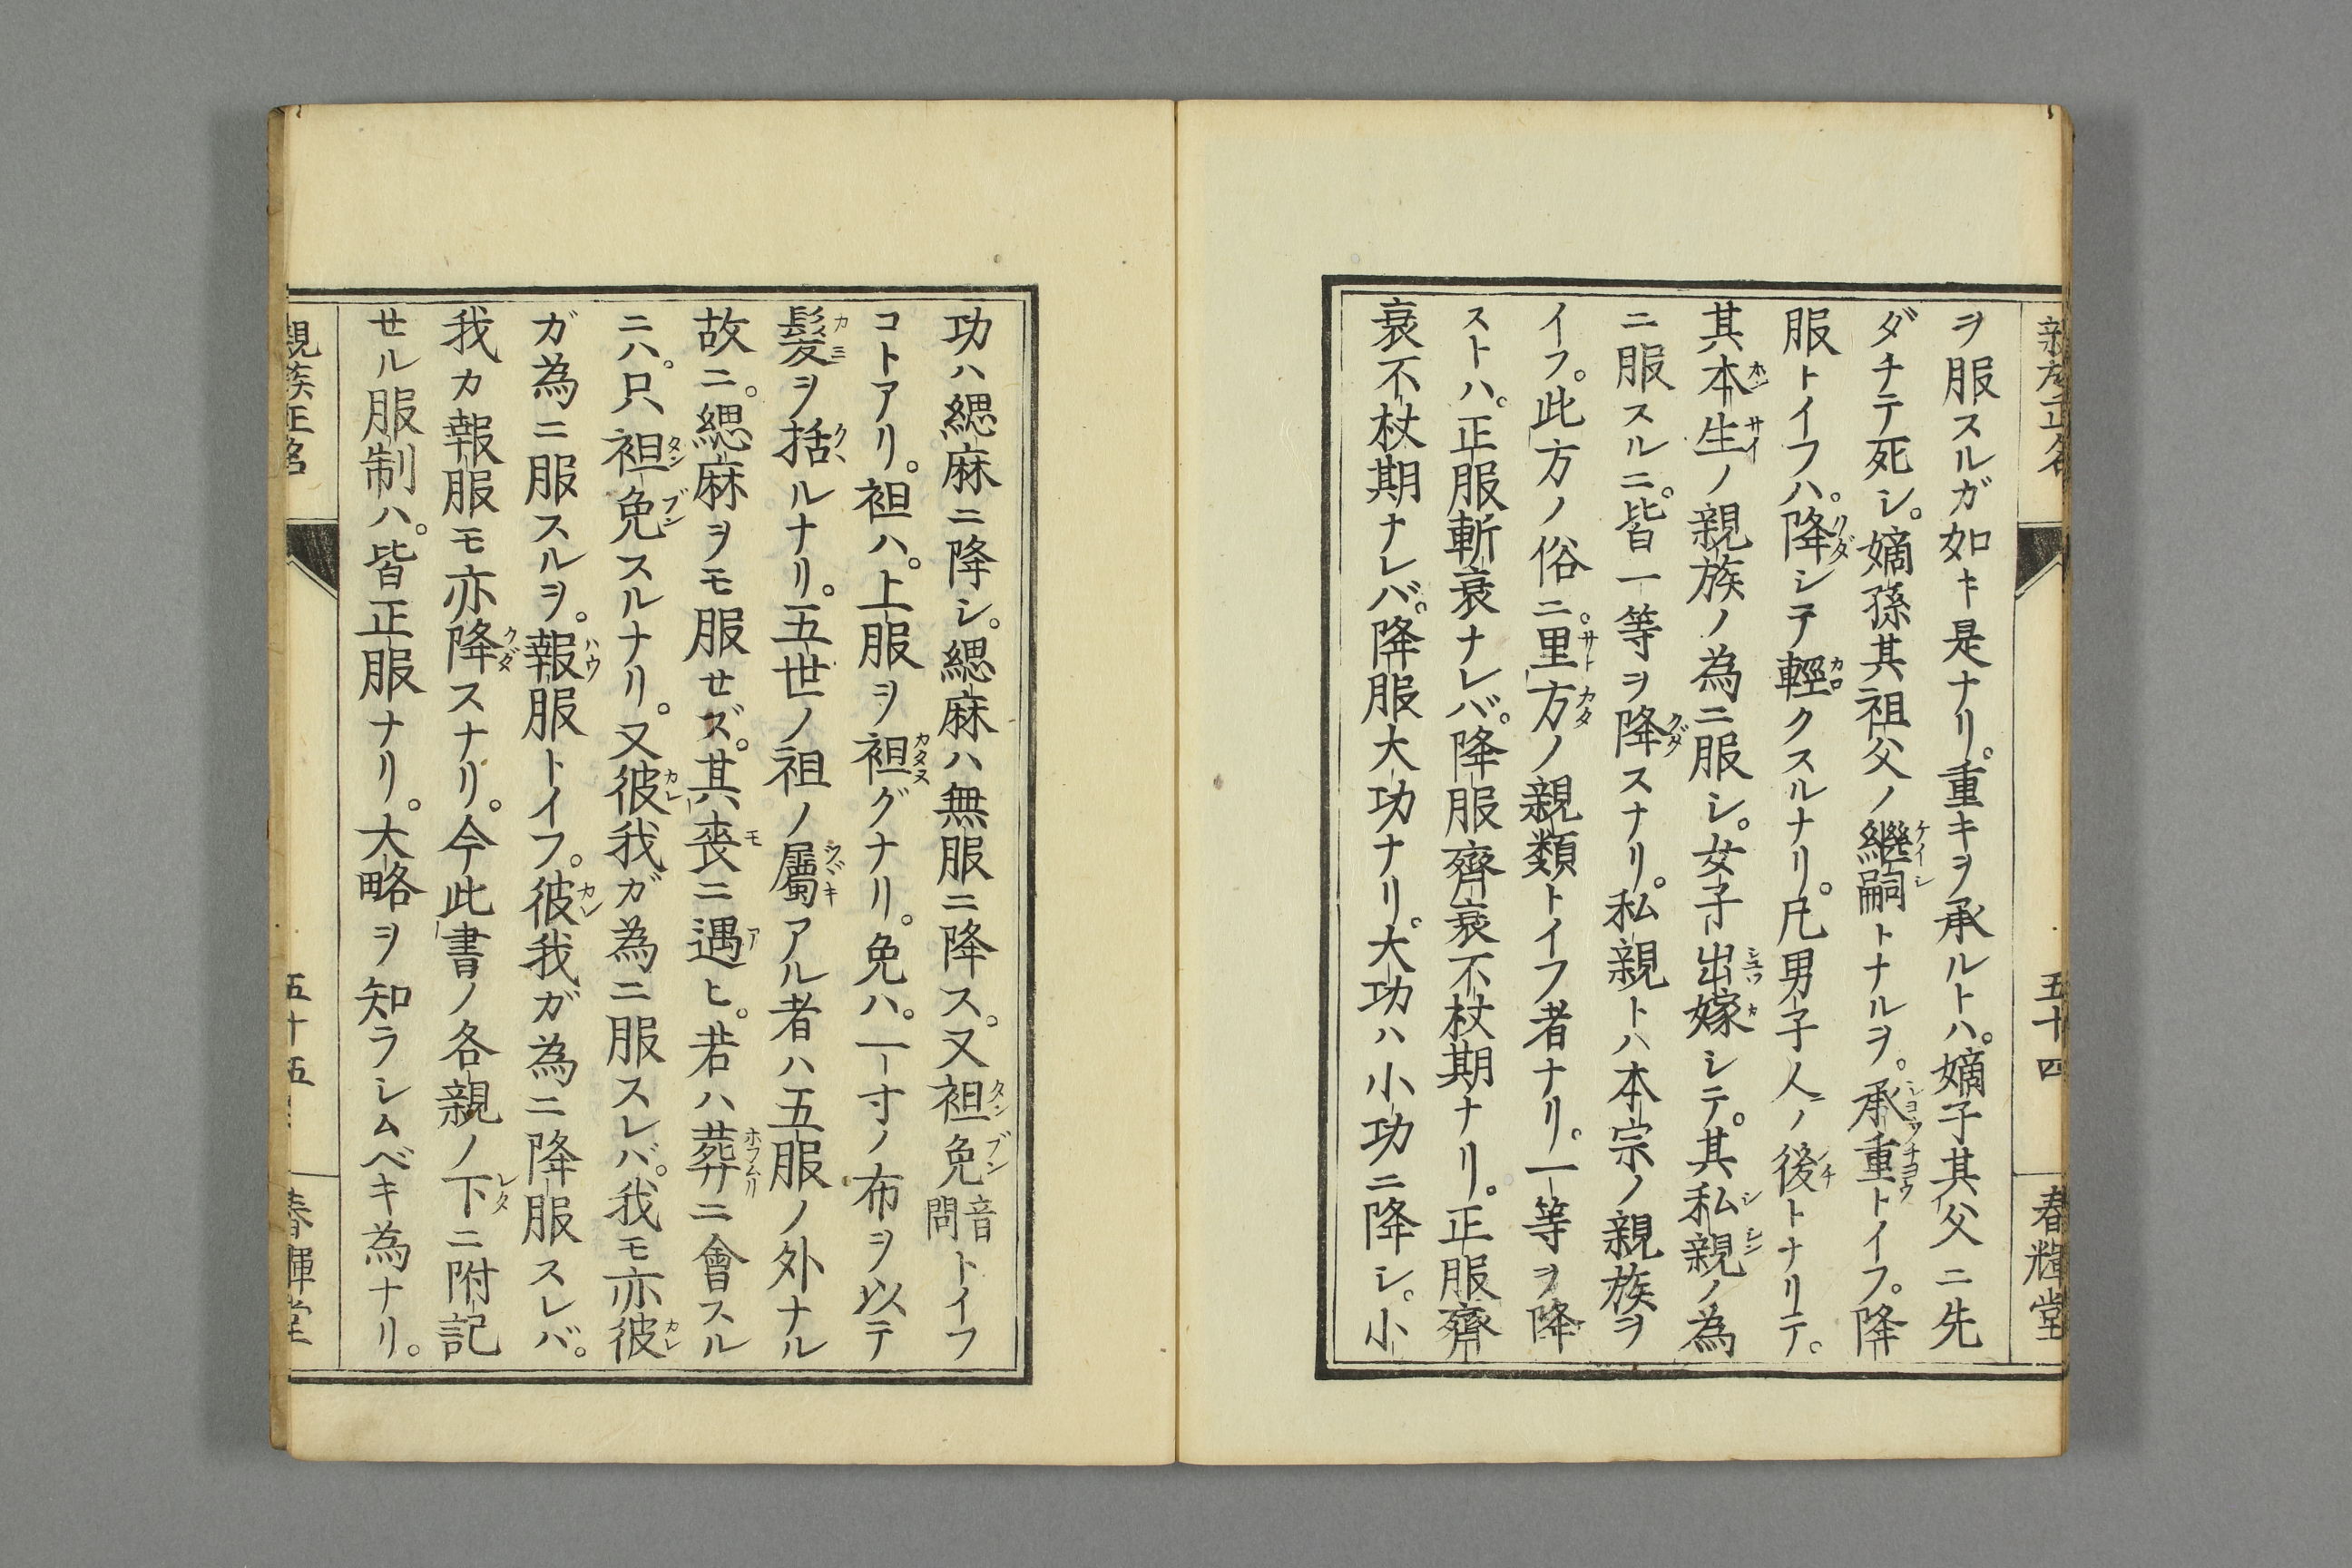 親族正名
五十四
春輝堂
ヲ服スルガ如キ是ナリ。重キヲ承ルトハ。嫡子其父ニ先
ダチテ死シ。嫡孫其祖父ノ繼嗣トナルヲ。承重トイフ。降
服トイフハ。降シテ輕クスルナリ。凡男子人ノ後トナリテ。
其本生ノ親族ノ為ニ服シ。女子出嫁シテ。其私親ノ為
ニ服スルニ。皆一等ヲ降スナリ。私親トハ本宗ノ親族ヲ
イフ。此方ノ俗ニ。里方ノ親類トイフ者ナリ。一等ヲ降
ストハ。正服斬衰ナレバ。降服齊衰不杖期ナリ。正服齊
衰不杖期ナレバ。降服大功ナリ。大功ハ小功ニ降シ。小
功ハ緦麻ニ降シ。緦麻ハ無服ニ降ス。又袒免音問トイフ
コトアリ。袒ハ。上服ヲ袒グナリ。免ハ。一寸ノ布ヲ以テ
髮ヲ括ルナリ。五世ノ祖ノ屬アル者ハ五服ノ外ナル
故ニ。緦麻ヲモ服セズ。其喪ニ遇ヒ。若ハ葬ニ會スル
ニハ。只袒免スルナリ。又彼我ガ為ニ服スレバ。我モ亦彼
ガ為ニ服スルヲ。報服トイフ。彼我ガ為ニ降服スレバ。
我カ報服モ亦降スナリ。今此書ノ各親ノ下ニ附記
セル服制ハ。皆正服ナリ。大略ヲ知ラシムベキ為ナリ。
親族正名
五十五
春輝堂